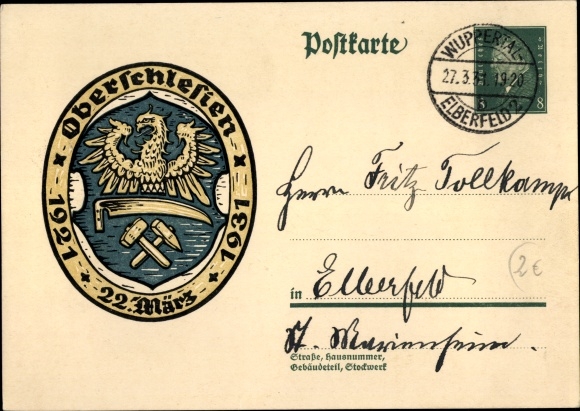 Postkarte
WUPPERTAL-
27.3.31.19-20
ELBERFELD 2
8 8
Oberschlesien
1921 1931
22. März
Herrn Fritz Tollkamp
in Elberfeld
St. Marienheim.
Straße, Hausnummer,
Gebäudeteil, Stockwerk
2€